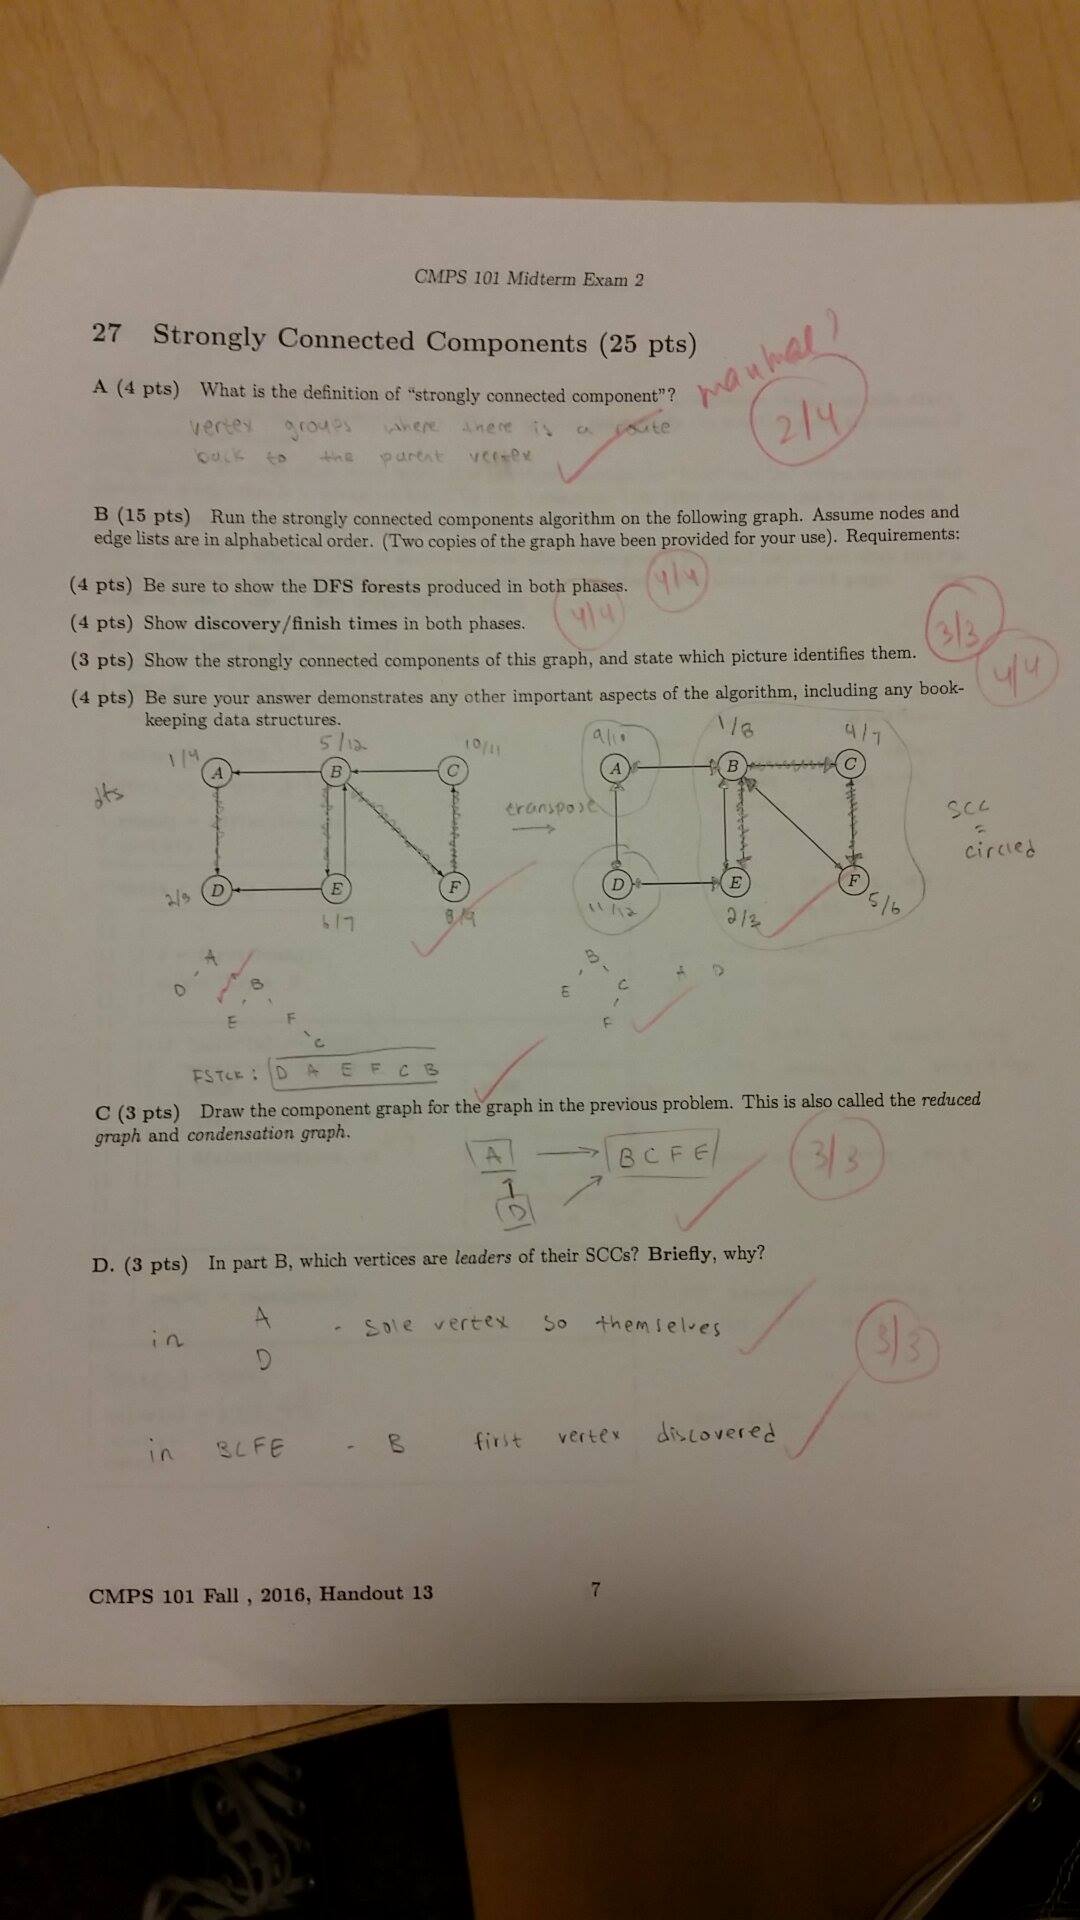 CMPS 101 Midterm Exam 2
27 Strongly Connected Components (25 pts)
maximal?
A (4 pts) What is the definition of "strongly connected component"?
2/4
vertex groups where there is a route
back to the parent vertex
B (15 pts) Run the strongly connected components algorithm on the following graph. Assume nodes and
edge lists are in alphabetical order. (Two copies of the graph have been provided for your use). Requirements:
(4 pts) Be sure to show the DFS forests produced in both phases. 4/4
(4 pts) Show discovery/finish times in both phases. 4/4
(3 pts) Show the strongly connected components of this graph, and state which picture identifies them. 3/3
(4 pts) Be sure your answer demonstrates any other important aspects of the algorithm, including any book- 4/4
keeping data structures.
1/4 5/12 10/11 9/10 1/8 4/7
A B C A B C
dfs transpose SCC
=
circled
D E F D E F
2/3 6/7 8/9 11/12 2/3 5/6
A B
D B E C A D
E F F
C
FSTCK: D A E F C B
C (3 pts) Draw the component graph for the graph in the previous problem. This is also called the reduced
graph and condensation graph.
A B C F E 3/3
D
D. (3 pts) In part B, which vertices are leaders of their SCCs? Briefly, why?
A
in - sole vertex so themselves 3/3
D
in BCFE - B first vertex discovered
CMPS 101 Fall , 2016, Handout 13 7